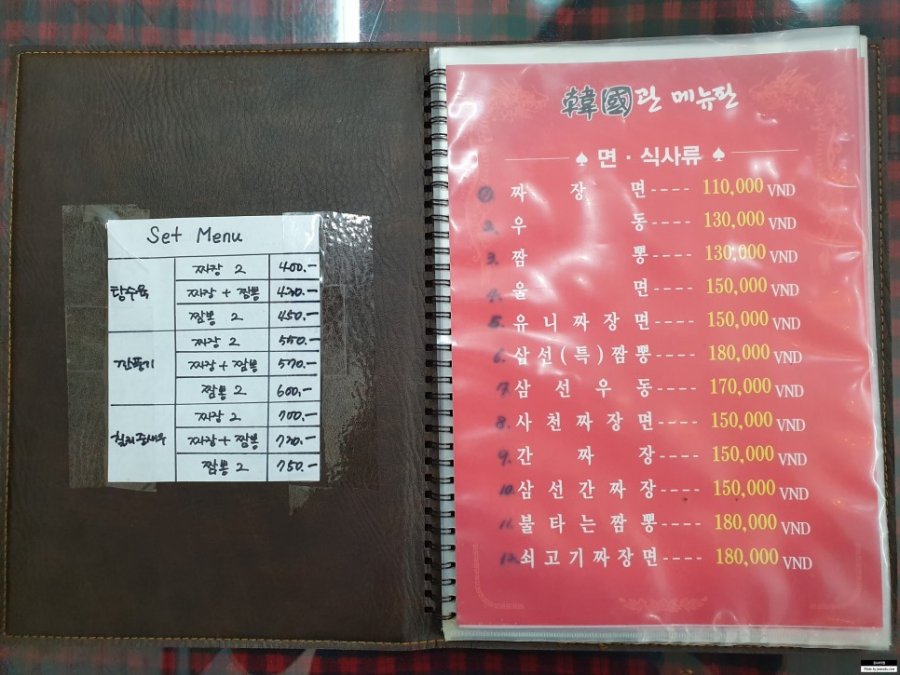 Set Menu
탕수육
짜장 2 400.-
짜장 + 짬뽕 430.-
짬뽕 2 450.-
깐풍기
짜장 2 550.-
짜장 + 짬뽕 570.-
짬뽕 2 600.-
칠리중새우
짜장 2 700.-
짜장 + 짬뽕 730.-
짬뽕 2 750.-
韓國관 메뉴판
♠ 면 · 식사류 ♠
1. 짜 장 면 ---- 110,000 VND
2. 우 동 ---- 130,000 VND
3. 짬 뽕 ---- 130,000 VND
4. 울 면 ---- 150,000 VND
5. 유니짜장면 ---- 150,000 VND
6. 삼선(특)짬뽕 ---- 180,000 VND
7. 삼 선 우 동 ---- 170,000 VND
8. 사천짜장면 ---- 150,000 VND
9. 간 짜 장 ---- 150,000 VND
10. 삼선간짜장 ---- 150,000 VND
11. 불타는짬뽕 ---- 180,000 VND
12. 쇠고기짜장면 ---- 180,000 VND